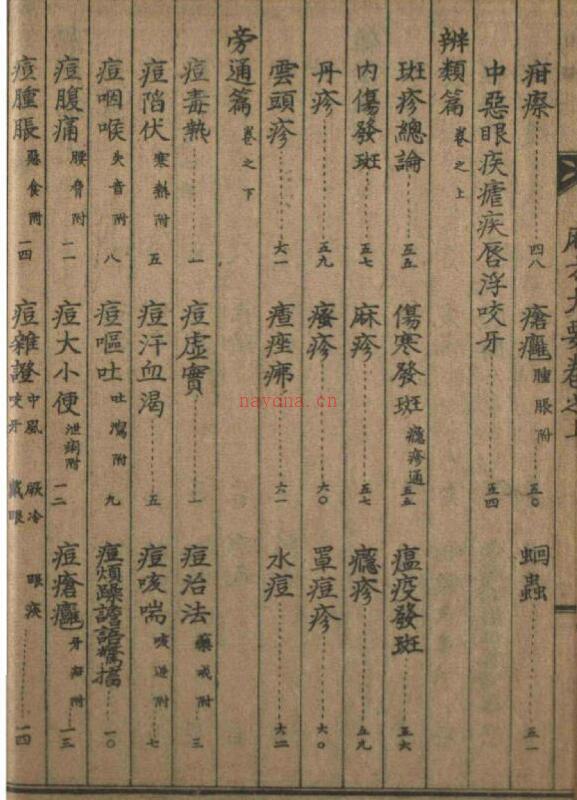 疳瘵……四八 瘡癰 腫脹附……五〇 蛔蟲……五一
中惡眼疾瘧疾唇浮咬牙……五四
辨類篇 卷之上
斑疹總論……五五 傷寒發斑 癮疹通 五五 瘟疫發斑……五六
內傷發斑……五七 麻疹……五七 癮疹……五九
丹疹……五九 瘙疹……六〇 罩痘疹……六〇
雲頭疹……六一 痤疿……六一 水痘……六二
旁通篇 卷之下
痘毒熱……一 痘虛實……一 痘治法 藥戒附……三
痘陷伏 寒熱附 五 痘汗血渴……五 痘咳喘 咳逆附……七
痘咽喉 失音附 八 痘嘔吐 吐瀉附 九 痘煩躁譫語驚搐……一〇
痘腹痛 腰脅附 一一 痘大小便 泄痢附 一二 痘瘡癰 牙疳附……一三
痘腫脹 惡食附 一四 痘雜證 中風 咬牙 厥冷 戴眼 眼疾……一四
nayona.cn